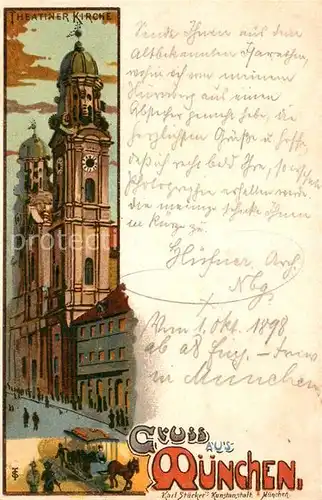 THEATINER KIRCHE
Sende Ihnen aus dem
Altbekannten
wohin ich von meinem
Nürnberg aus einen
Abstecher gemacht habe, die
herzlichsten Grüße u. hoffe,
daß ich recht bald Ihre,
Photographie erhalten werde
die meinige schicke Ihnen
in Kürze zu.
Arch.
Nbg.
Mchn 1. Okt. 1898
ab
in München
GRUSS AUS
MÜNCHEN.
Karl Stücker's Kunstanstalt, München.